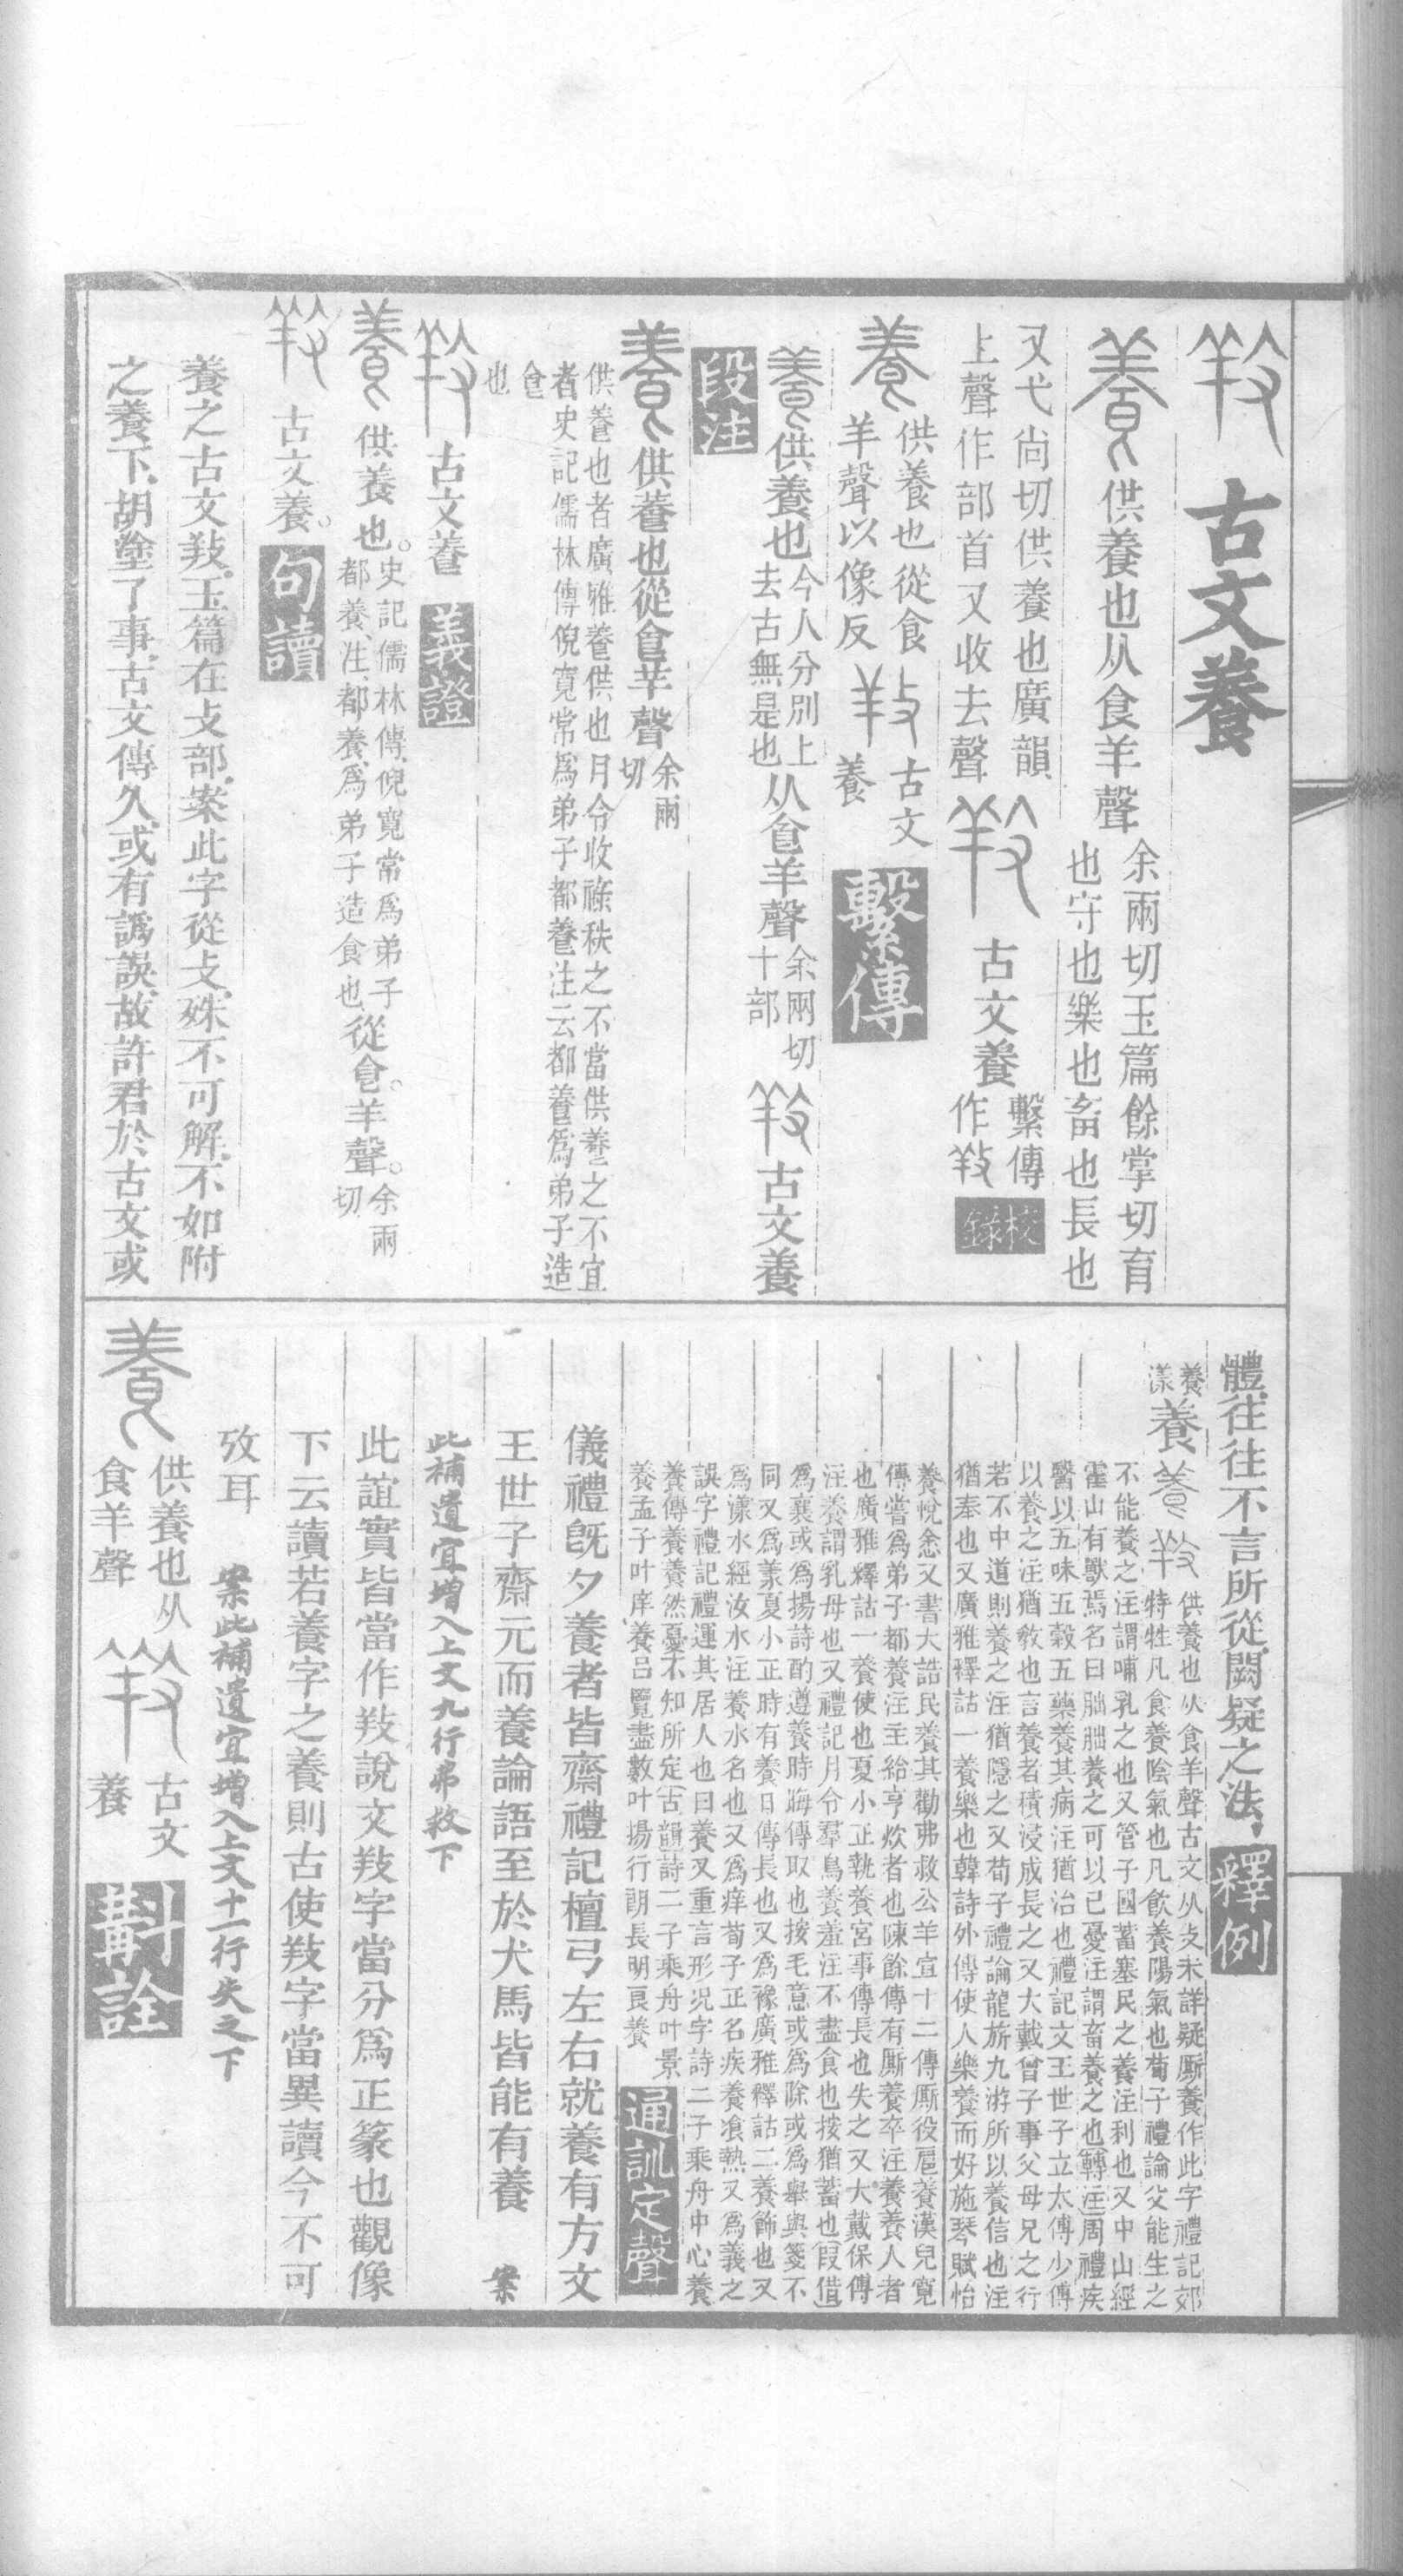 𢼝 古文養
養 供養也从食羊聲 余兩切玉篇餘掌切育
也守也樂也畜也長也
又弋尙切供養也廣韻
上聲作部首又收去聲 𢼝 古文養 繫傳
作𢼝 校錄
養 供養也從食
羊聲以像反 𢼝 古文
養 繫傳
養 供養也 今人分別上
去古無是也 从食羊聲 余兩切
十部 𢼝 古文養
段注
養 供養也從食羊聲 余兩
切
供養也者廣雅養供也月令收祿秩之不當供養之不宜
者史記儒林傳倪寬常爲弟子都養注云都養爲弟子造
食
也
𢼝 古文養 義證
養 供養也。 史記儒林傳倪寬常爲弟子
都養、注、都養、爲弟子造食也 從食。羊聲。 余兩
切
𢼝 古文養。 句讀
養之古文𢼝、玉篇在攴部、案此字從攴、殊不可解、不如附
之養下、胡塗了事、古文傳久、或有譌誤、故許君於古文或
體、往往不言所從、闕疑之法、 釋例
養
漾 養 養 𢼝 供養也从食羊聲古文从攴未詳疑厮養作此字禮記郊
特牲凡食養陰氣也凡飲養陽氣也荀子禮論父能生之
不能養之注謂哺乳之也又管子國蓄塞民之養注利也又中山經
霍山有獸焉名曰朏朏養之可以已憂注謂畜養之也轉注周禮疾
醫以五味五穀五藥養其病注猶治也禮記文王世子立太傅少傅
以養之注猶教也言養者積浸成長之又大戴曾子事父母兄之行
若不中道則養之注猶隱之又荀子禮論龍旂九游所以養信也注
猶奉也又廣雅釋詁一養樂也韓詩外傳使人樂養而好施琴賦怡
養悅悆又書大誥民養其勸弗救公羊宣十二傳厮役扈養漢兒寬
傳嘗爲弟子都養注主給亨炊者也陳餘傳有厮養卒注養養人者
也廣雅釋詁一養使也夏小正執養宮事傳長也失之又大戴保傅
注養謂乳母也又禮記月令羣鳥養羞注不盡食也按猶蓄也假借
爲襄或爲揚詩酌遵養時晦傳取也按毛意或爲除或爲舉與箋不
同又爲羕夏小正時有養日傳長也又爲豫廣雅釋詁二養飾也又
爲瀁水經汝水注養水名也又爲痒荀子正名疾養凔熱又爲義之
誤字禮記禮運其居人也曰養又重言形况字詩二子乘舟中心養
養傳養養然憂不知所定古韻詩二子乘舟叶景
養孟子叶庠養呂覽盡數叶揚行朗長明良養 通訓定聲
儀禮旣夕養者皆齋禮記檀弓左右就養有方文
王世子齋元而養論語至於犬馬皆能有養 案
此補遺宜增入上文九行弗救下
此誼實皆當作𢼝說文𢼝字當分爲正篆也觀像
下云讀若養字之養則古使𢼝字當異讀今不可
攷耳 案此補遺宜增入上文十一行失之下
養 供養也从
食羊聲 𢼝 古文
養 斠詮